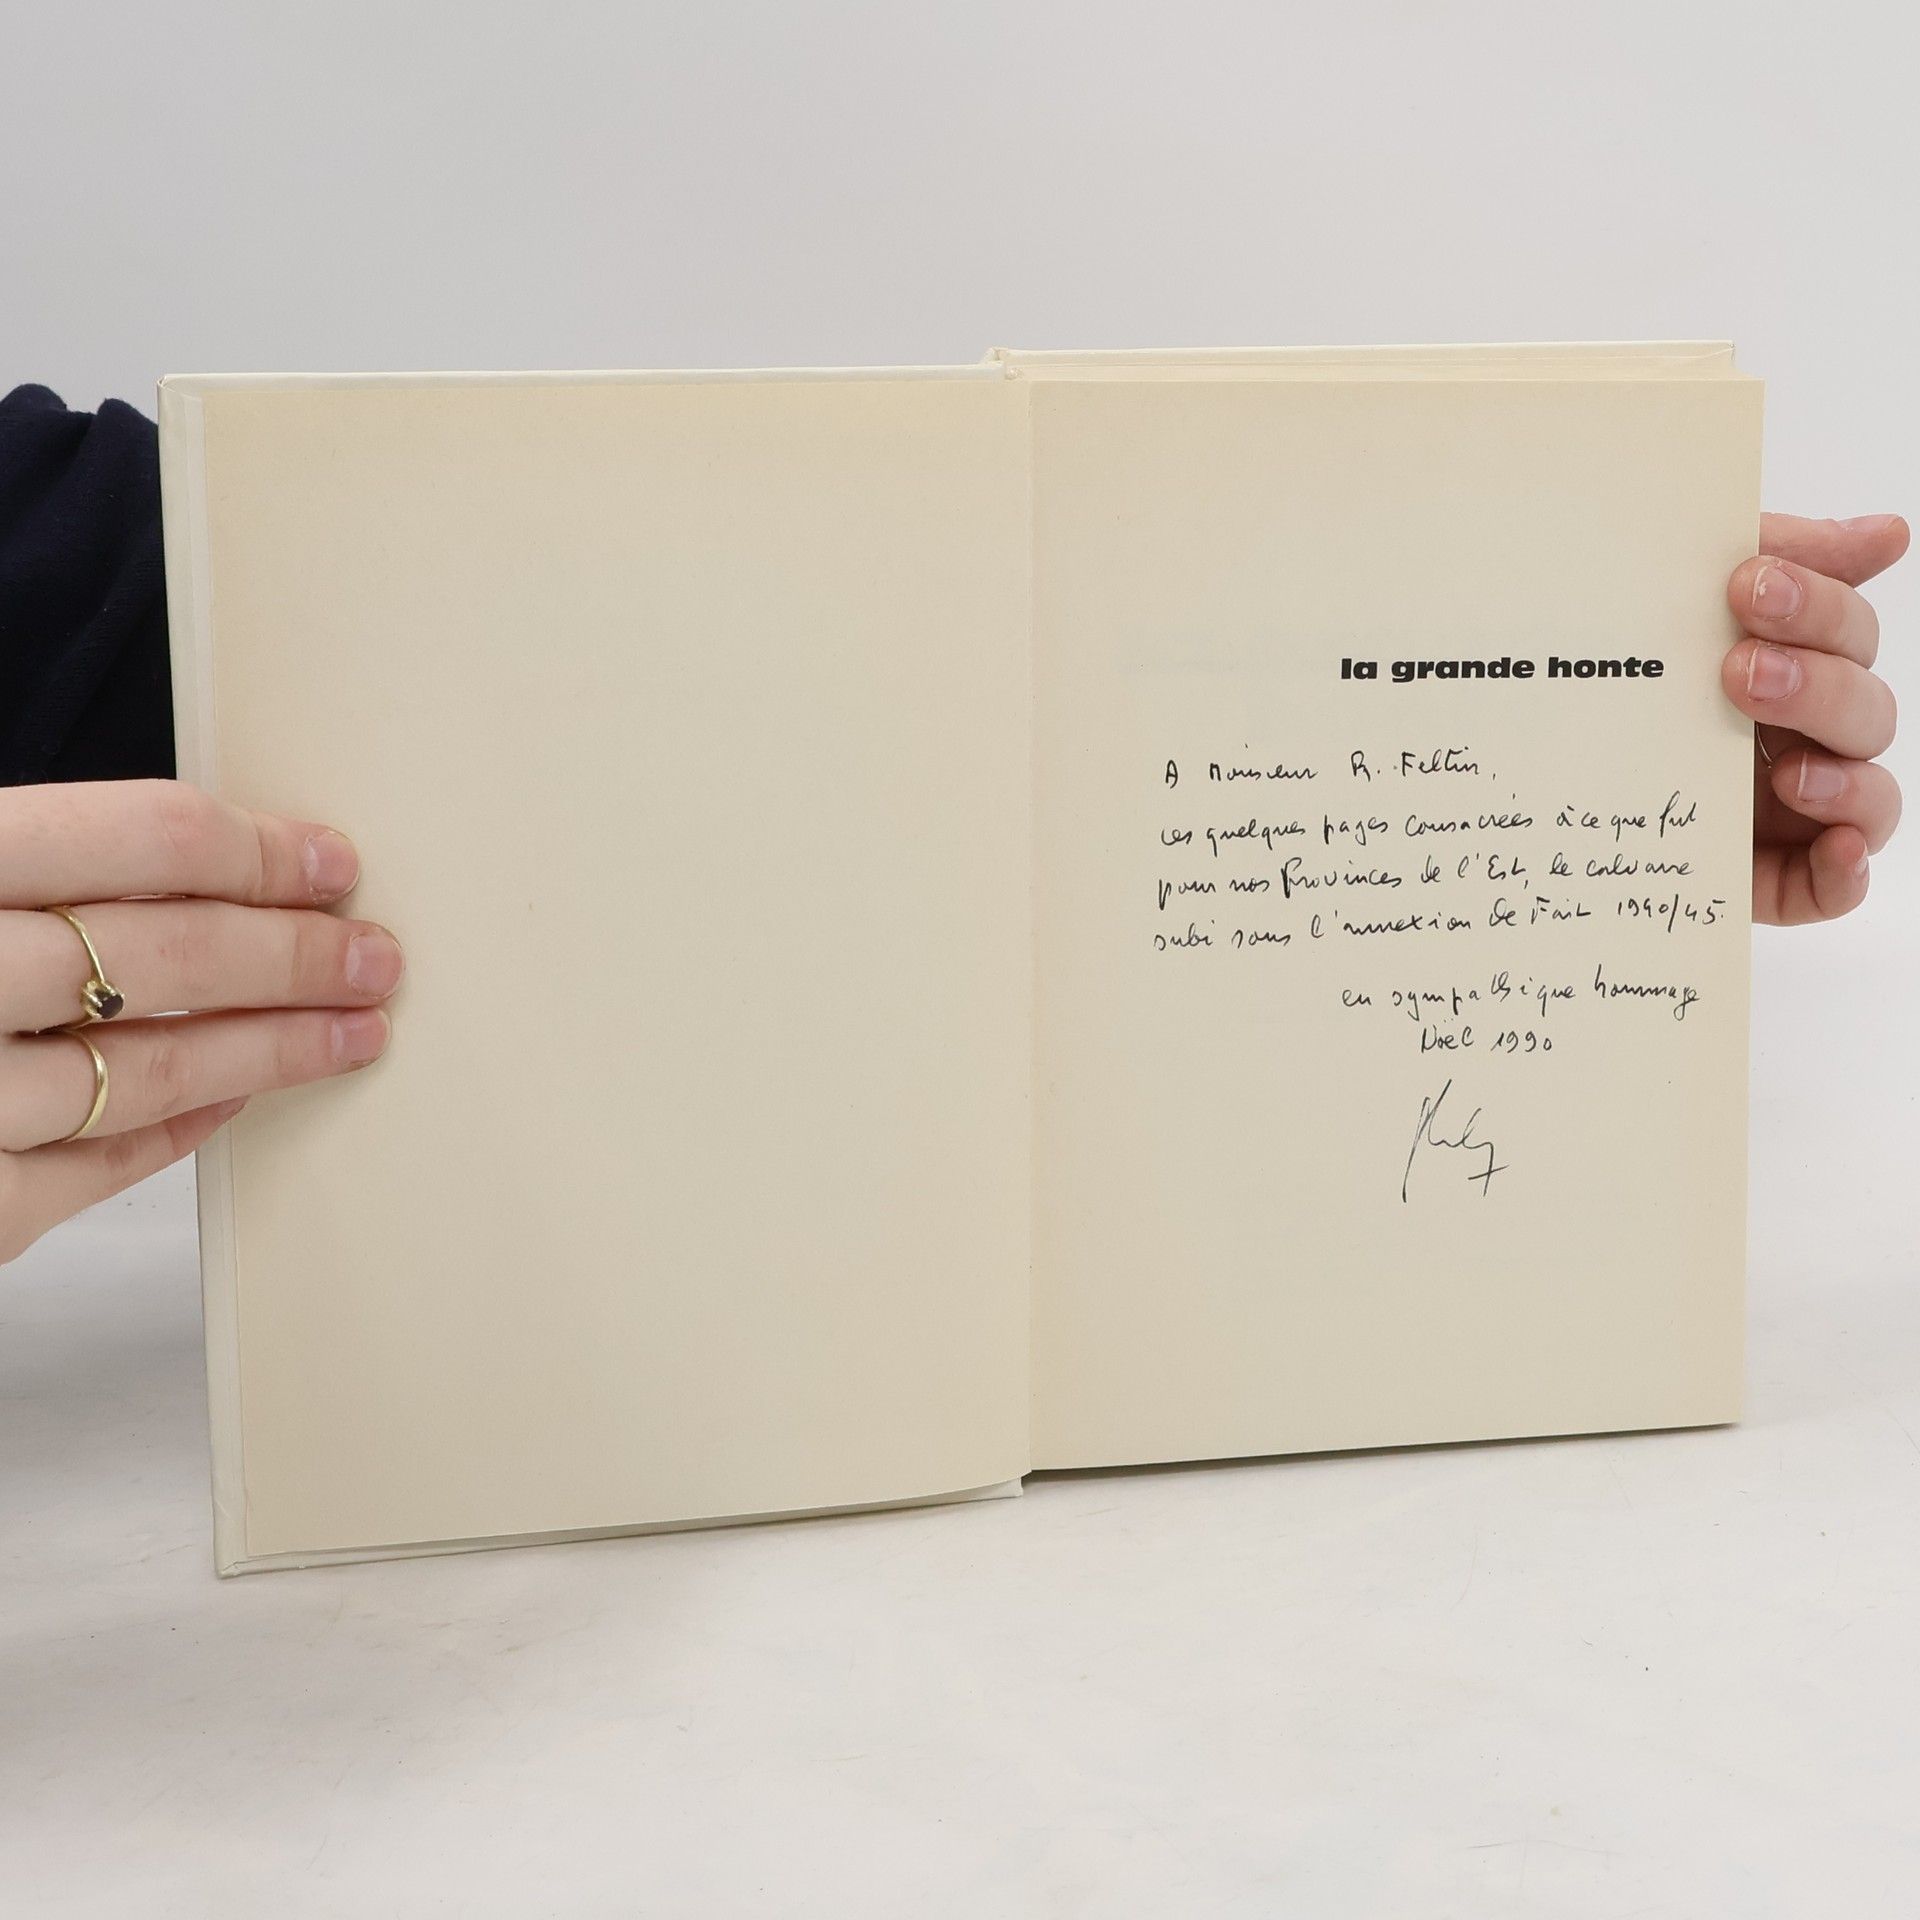 la grande honte
A Monsieur R. Feltin,
ces quelques pages consacrées à ce que fut
pour nos Provinces de l'Est, le calvaire
subi sous l'annexion de Fait 1940/45.
en sympathique hommage
Noël 1990